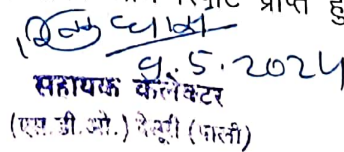 प्राप्त हु
9.5.2024
सहायक कलेक्टर
(एस.डी.ओ.) देसूरी (पाली)